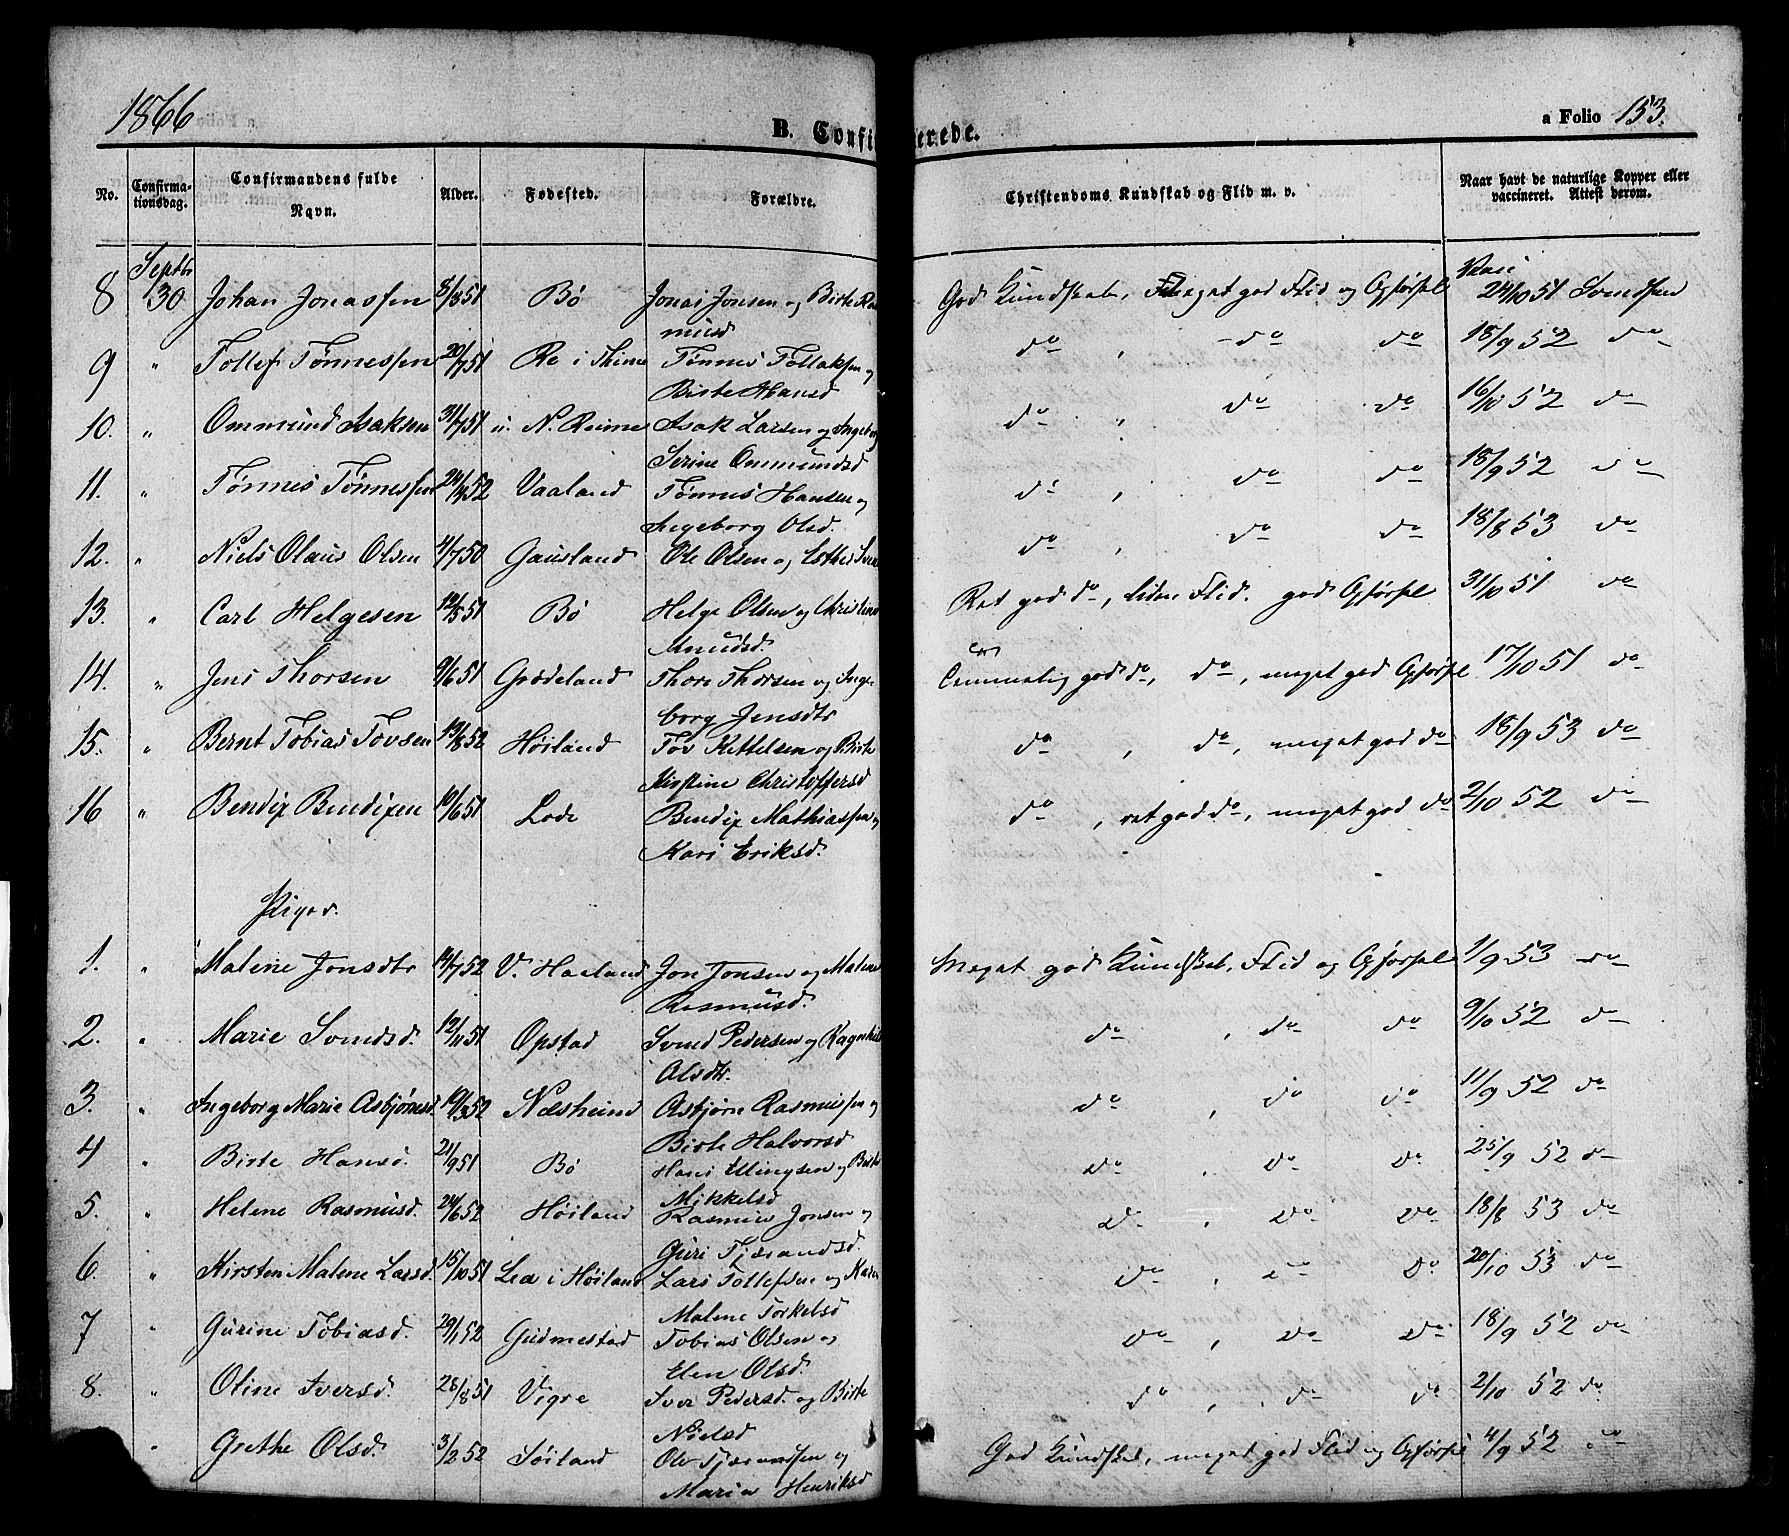 1866
B. Confirmerede.
a Folio 153.
No. Confirmationsdag. Confirmandens fulde Navn. Alder. Fødested. Forældre. Christendoms Kundskab og Flid m. v. Naar havt de naturlige Kopper eller vaccineret. Attest derom.
Septbr
8 30 Johan Jonassen 8/8 51 Bø Jonas Jonsen og Birte Ras God Kundskab, meget god Flid og Opførsel Vacc 24/10 51 Svendsen
musd
9 " Tollef Tønnessen 20/7 51 Re i Thime Tønnes Tollaksen og do , do do 18/9 52 do
Birte Hansd
10. " Ommund Isaksen 31/7 51 N. Reime Isak Larsen og Ingeborg do " do do 16/10 52 do
Serine Ommundsd
11. " Tønnes Tønnessen 24/4 52 Vaaland Tønnes Hansen og do , do do 18/9 52 do
Ingeborg Olsd.
12. " Niels Olaus Olsen 4/7 50 Gausland Ole Olsen og Esther do , do do 18/8 53 do
13. " Carl Helgesen 12/5 51 Bø Helge Olsen og Christine Ret god do, liden Flid. god Opførsel 31/10 51 do
Knudsd.
14. " Jens Thorsen 9/6 51 Grødeland Thore Thorsen og Inge god do, do, meget god Opførsel 17/10 51 do
borg Jensdtr
15. " Bernt Tobias Tovsen 19/8 52 Høiland Tov Kittelsen og Birte do , do, meget god do 18/9 53 do
Kirstine Christoffersd
16 " Bendix Bendixen 10/6 51 Lode Bendix Mathiassen og do , ret god do, meget god do 2/10 52 do
Kari Eriksd.
Piger.
1. " Malene Jonsdtr 14/7 52 V. Haaland Jon Jonsen og Malene Meget god Kundskab, Flid og Opførsel 1/9 53 do
Rasmusd.
2. " Marie Svendsd. 12/11 51 Opstad Svend Pedersen og do , do do 9/10 52 do
Olsdtr.
3. " Ingeborg Marie Asbjørnsd. 19/3 52 Næsheim Asbjørn Rasmussen og do , do do 11/9 52 do
Birte Halvorsd
4 " Birte Hansd. 21/9 51 Bø Hans Ellingsen og Birte do , do do 25/9 52 do
Mikkelsd
5. " Helene Rasmusd. 24/6 52 Høiland Rasmus Jonsen og do , do do 18/8 53 do
Guri Tjærandsd.
6. " Kirsten Malene Larsd. 15/10 51 Lea i Høiland Lars Tollefsen og Karen do , do do 20/10 53 do
Malene Torkelsd
7 " Gurine Tobiasd. 29/1 52 Gudmestad Tobias Olsen og do , do do 18/9 52 do
Elen Olsd.
8. " Oline Iversd. 28/8 51 Vigre Iver Pedersd. og Birte do , do do 2/10 52 do
Nielsd
" Grethe Olsd. 3/2 52 Søiland Ole Tjærandsen og God Kundskab, meget god Flid og Opførsel 4/9 52 do
Maria Henriksd